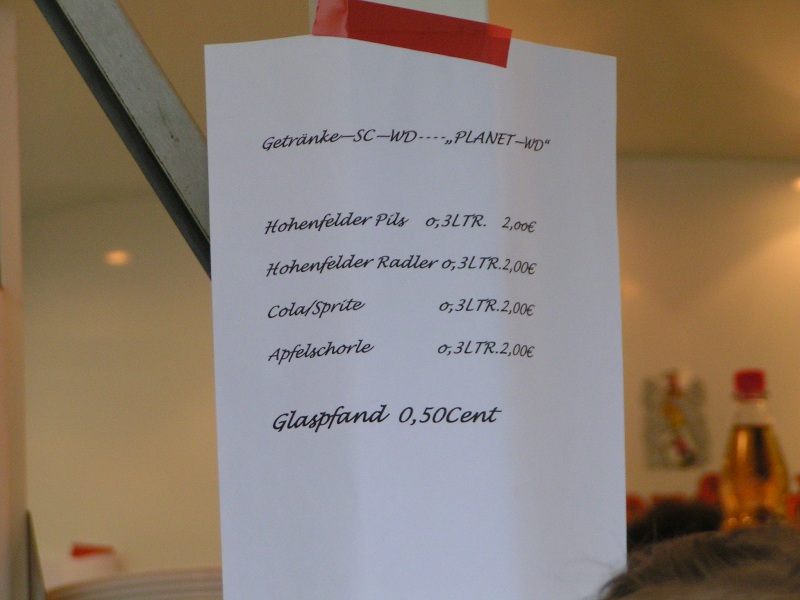 Getränke—SC—WD----„PLANET—WD“
Hohenfelder Pils 0,3LTR. 2,00€
Hohenfelder Radler 0,3LTR.2,00€
Cola/Sprite 0,3LTR.2,00€
Apfelschorle 0,3LTR.2,00€
Glaspfand 0,50Cent